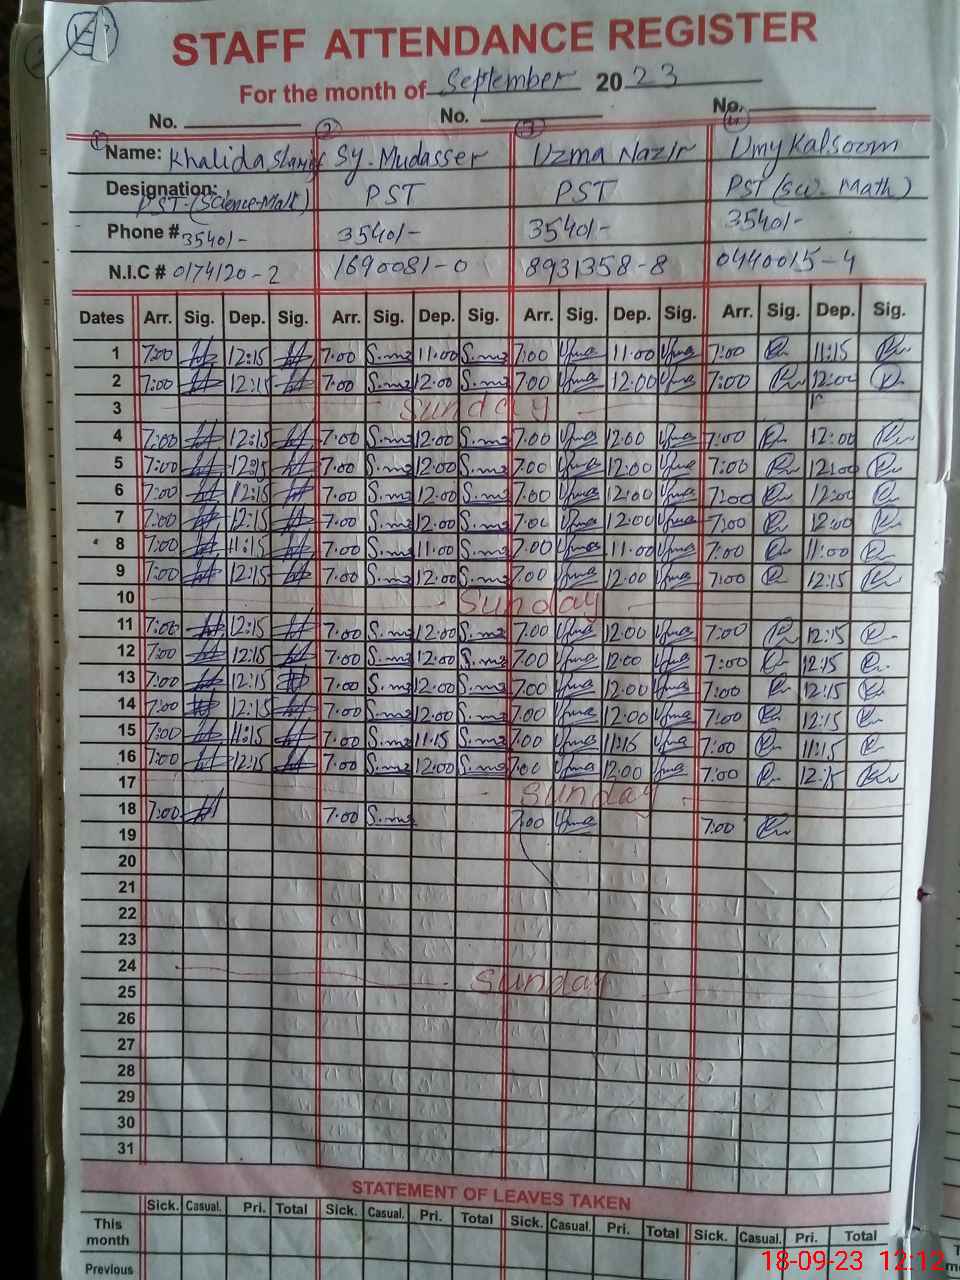 STAFF ATTENDANCE REGISTER
For the month of September 2023
No. No. No.
① ② ③ ④
Name: Khalida Sharif Sy. Mudasser Uzma Nazir Umy Kalsoom
Designation: PST-(Science-Math) PST PST PST (Sci. Math)
Phone # 35401- 35401- 35401- 35401-
N.I.C # 0174120-2 1690081-0 8931358-8 0440015-4
Dates Arr. Sig. Dep. Sig. Arr. Sig. Dep. Sig. Arr. Sig. Dep. Sig. Arr. Sig. Dep. Sig.
1 7:00 12:15 7.00 S.mz 11.00 S.mz 7.00 11.00 7:00 11:15
2 7:00 12:15 7.00 S.mz 12.00 S.mz 7.00 12.00 7:00 12:00
3 Sunday
4 7:00 12:15 7.00 S.mz 12.00 S.mz 7.00 12.00 7:00 12:00
5 7:00 12:15 7.00 S.mz 12.00 S.mz 7.00 12.00 7:00 12:00
6 7:00 12:15 7.00 S.mz 12.00 S.mz 7.00 12.00 7:00 12:00
7 7:00 12:15 7.00 S.mz 12.00 S.mz 7.00 12.00 7:00 12:00
8 7:00 11:15 7.00 S.mz 11.00 S.mz 7.00 11.00 7:00 11:00
9 7:00 12:15 7.00 S.mz 12.00 S.mz 7.00 12.00 7:00 12:15
10 Sunday
11 7:00 12:15 7.00 S.mz 12.00 S.mz 7.00 12.00 7:00 12:15
12 7:00 12:15 7.00 S.mz 12.00 S.mz 7.00 12.00 7:00 12:15
13 7:00 12:15 7.00 S.mz 12.00 S.mz 7.00 12.00 7:00 12:15
14 7:00 12:15 7.00 S.mz 12.00 S.mz 7.00 12.00 7:00 12:15
15 7:00 11:15 7.00 S.mz 11.15 S.mz 7.00 11.15 7:00 11:15
16 7:00 12:15 7.00 S.mz 12.00 S.mz 7.00 12.00 7:00 12:15
17 Sunday
18 7:00 7.00 S.mz 7.00 7:00
19
20
21
22
23
24 Sunday
25
26
27
28
29
30
31
STATEMENT OF LEAVES TAKEN
Sick. Casual. Pri. Total Sick. Casual. Pri. Total Sick. Casual. Pri. Total Sick. Casual. Pri. Total
This month
Previous
18-09-23 12:12